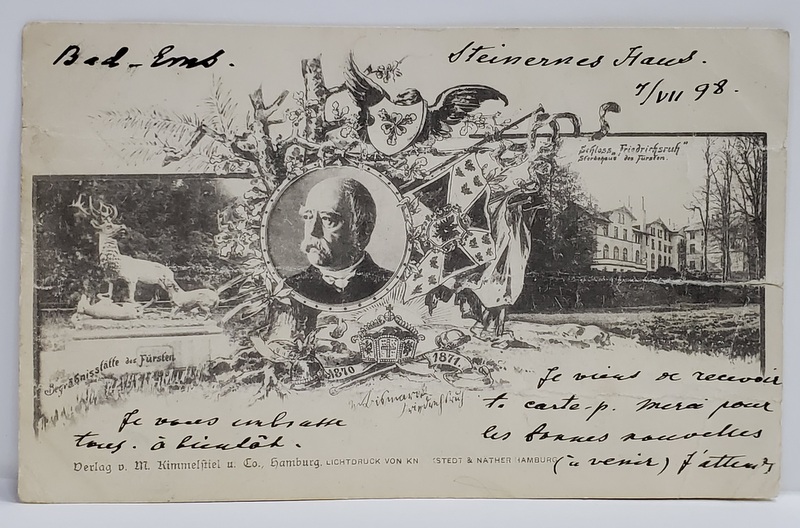 Bad-Ems.
Steinernes Haus.
7/VII 98.
Schloss „Friedrichsruh"
Sterbehaus des Fürsten.
Begräbnisstätte des Fürsten
1870
1871
v. Bismarck
Friedrichsruh
Je viens de recevoir
ta carte p. merci pour
les bonnes nouvelles
(à venir) J'attends
Je vous embrasse
tous. à bientôt.
Verlag v. M. Kimmelstiel u. Co., Hamburg. LICHTDRUCK VON KN STEDT & NÄTHER HAMBURG